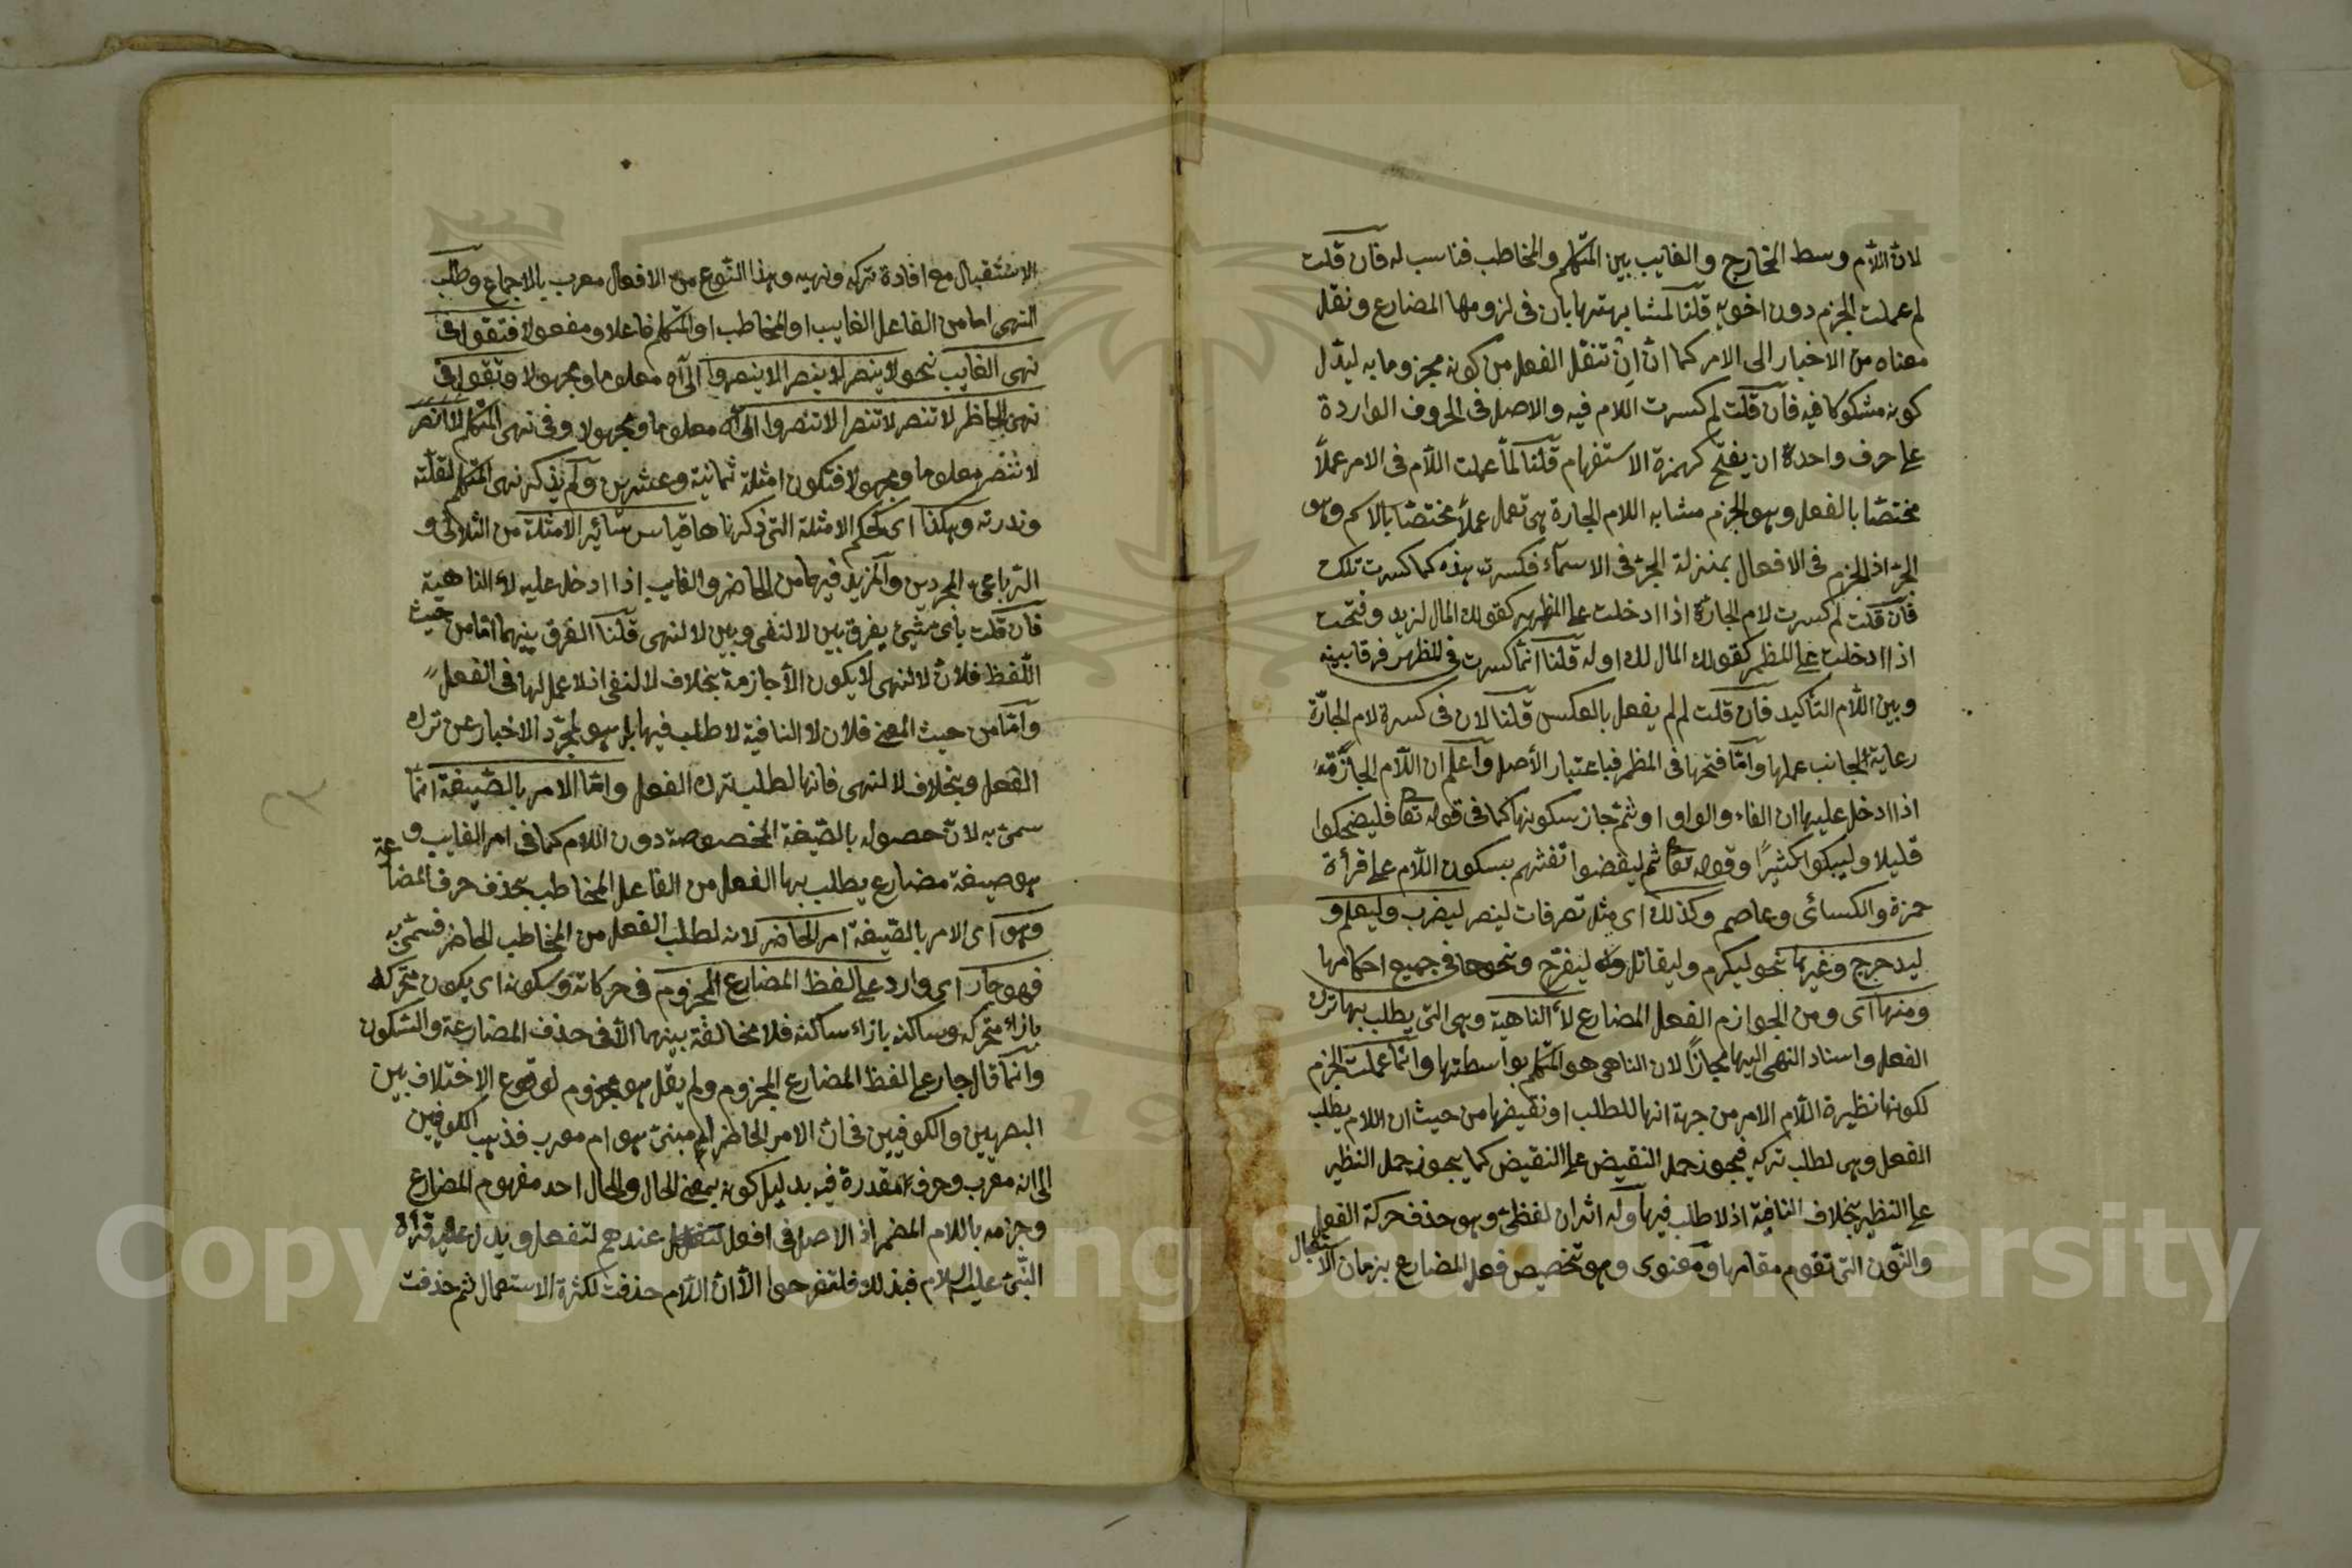 لان اللام وسط المخارج والغايب بين المتكلم والمخاطب فناسب له فان قلت
لم عملت الجزم دون اخويه قلنا لمشابهتها بان فى لزومها المضارع ونقل
معناه من الاخبار الى الامر كما ان اِن تنقل الفعل من كونه مجزوما به ليدل
كونه مشكوكا فيه فان قلت لم كسرت اللام فيه والاصل فى الحروف الواردة
على حرف واحدة ان يفتح كهمزة الاستفهام قلنا لما عملت اللام فى الامر عملاً
مختصّا بالفعل وهو الجزم مشابه اللام الجارة هى تعمل عملاً مختصّا بالاسم وهو
الجرّ اذ الجزم فى الافعال بمنزلة الجرّ فى الاسماء فكسرت هذه كما كسرت تلك
فان قلت لم كسرت لام الجارّة اذا ادخلت على المظهر كقولك المال لزيد وفتحت
اذا ادخلت على المظمر كقولك المال لك اوله قلنا انّما كسرت فى المظهر فرقا بينه
وبين اللام التأكيد فان قلت لم لم يفعل بالعكس قلنا لان فى كسرة لام الجارّة
رعاية لجانب عملها وامّا فتحها فى المظمر فباعتبار الأصل واعلم ان اللام الجازمة
اذا ادخل عليها ان الفاء والواو او ثم جاز سكونها كما فى قوله تعا فليضحكوا
قليلا وليبكوا كثيرًا وقوله تعا ثم ليقضوا تفثهم بسكون اللام على قرأة
حمزة والكسائى وعاصم وكذلك اى مثل تصرفات لينصر ليضرب وليعلم و
ليدحرج وغيرها نحو ليكرم وليقاتل وليفرّح ونحوها فى جميع احكامها
ومنها اى ومن الجوازم الفعل المضارع لأ الناهية وهى التى يطلب بها ترك
الفعل واسناد النهى اليها مجازًا لان الناهى هو المتكلم بواسطتها وانّما عملت الجزم
لكونها نظيرة اللام الامر من جهة انها للطلب او نقيضها من حيث ان اللام يطلب
الفعل وهى لطلب تركه فيجوز حمل النقيض على النقيض كما يجوز حمل النظير
على النظير بخلاف النافية اذ لا طلب فيها وله اثران لفظىّ وهو حذف حركة الفعل
والنّون التى تقوم مقامها ومعنوى وهو تخصيص فعل المضارع بزمان الاستقبال
الاستقبال مع افادة تركه ونهيه وهذا النّوع من الافعال معرب بالاجماع وطلب
النهى اما من الفاعل الغايب او المخاطب او المتكلم فاعلا ومفعولا فتقول فى
نهى الغايب نحو لا ينصر لا ينصرا لا ينصروا الى آه معلوما ومجهولا وتقول فى
نهى الحاظر لا تنصر لا تنصرا لا تنصروا الى آه معلوما ومجهولا وفى نهى المتكلم لا انصر
لا ننصر معلوما ومجهولا فتكون امثلة ثمانية وعشرين ولم يذكر نهى المتكلم لقلّته
وندرته وهكذا اى كحكم الامثلة التى ذكرناها قياس سائر الامثلة من الثلاثى و
الرباعى المجردين والمزيد فيهما من الحاضر والغايب اذا ادخل عليه لأ الناهية
فان قلت باى شيئ يفرق بين لا لنفى وبين لا لنهى قلنا الفرق بينهما امّا من حيث
اللفظ فلان لا لنهى لا يكون الأ جازمة بخلاف لا لنفى اذ لا عمل لها فى الفعل
وامّا من حيث المعنى فلان لا النافية لا طلب فيها بل هو لمجرّد الاخبار عن ترك
الفعل وبخلاف لا لنهى فانها لطلب ترك الفعل وامّا الامر بالصّيغة انما
سمى به لان حصوله بالصّيغة المخصوصة دون اللام كما فى امر الغايب و
هو صيغة مضارع يطلب بها الفعل من الفاعل المخاطب بحذف حرف المضارعة
وهو اى الامر بالصّيغة امر الحاضر لانه لطلب الفعل من المخاطب الحاضر فسمّى به
فهو جار اى وارد على لفظ المضارع المجزوم فى حركاته وسكونه اى يكون متحركه
بازاء متحركه وساكنه بازاء ساكنه فلا مخالفة بينهما الأ فى حذف المضارعة والسّكون
وانّما قال جار على لفظ المضارع المجزوم ولم يقل هو مجزوم لوقوع الاختلاف بين
البصريين والكوفيين فى ان الامر الحاظر أم مبنىّ هو ام معرب فذهب الكوفيين
الى انه معرب وحرف مقدرة فيه بدليل كونه بمعنى الحال والحال احد مفهوم المضارع
وجزمه باللام المضمر اذ الاصل فى افعل عندهم لتفعل ويدل عليه قرأة
النّبىّ عليه السلام فبذلك فلتفرحوا الأ ان اللام حذفت لكثرة الاستعمال ثم حذفت
Copyright © King Saud University